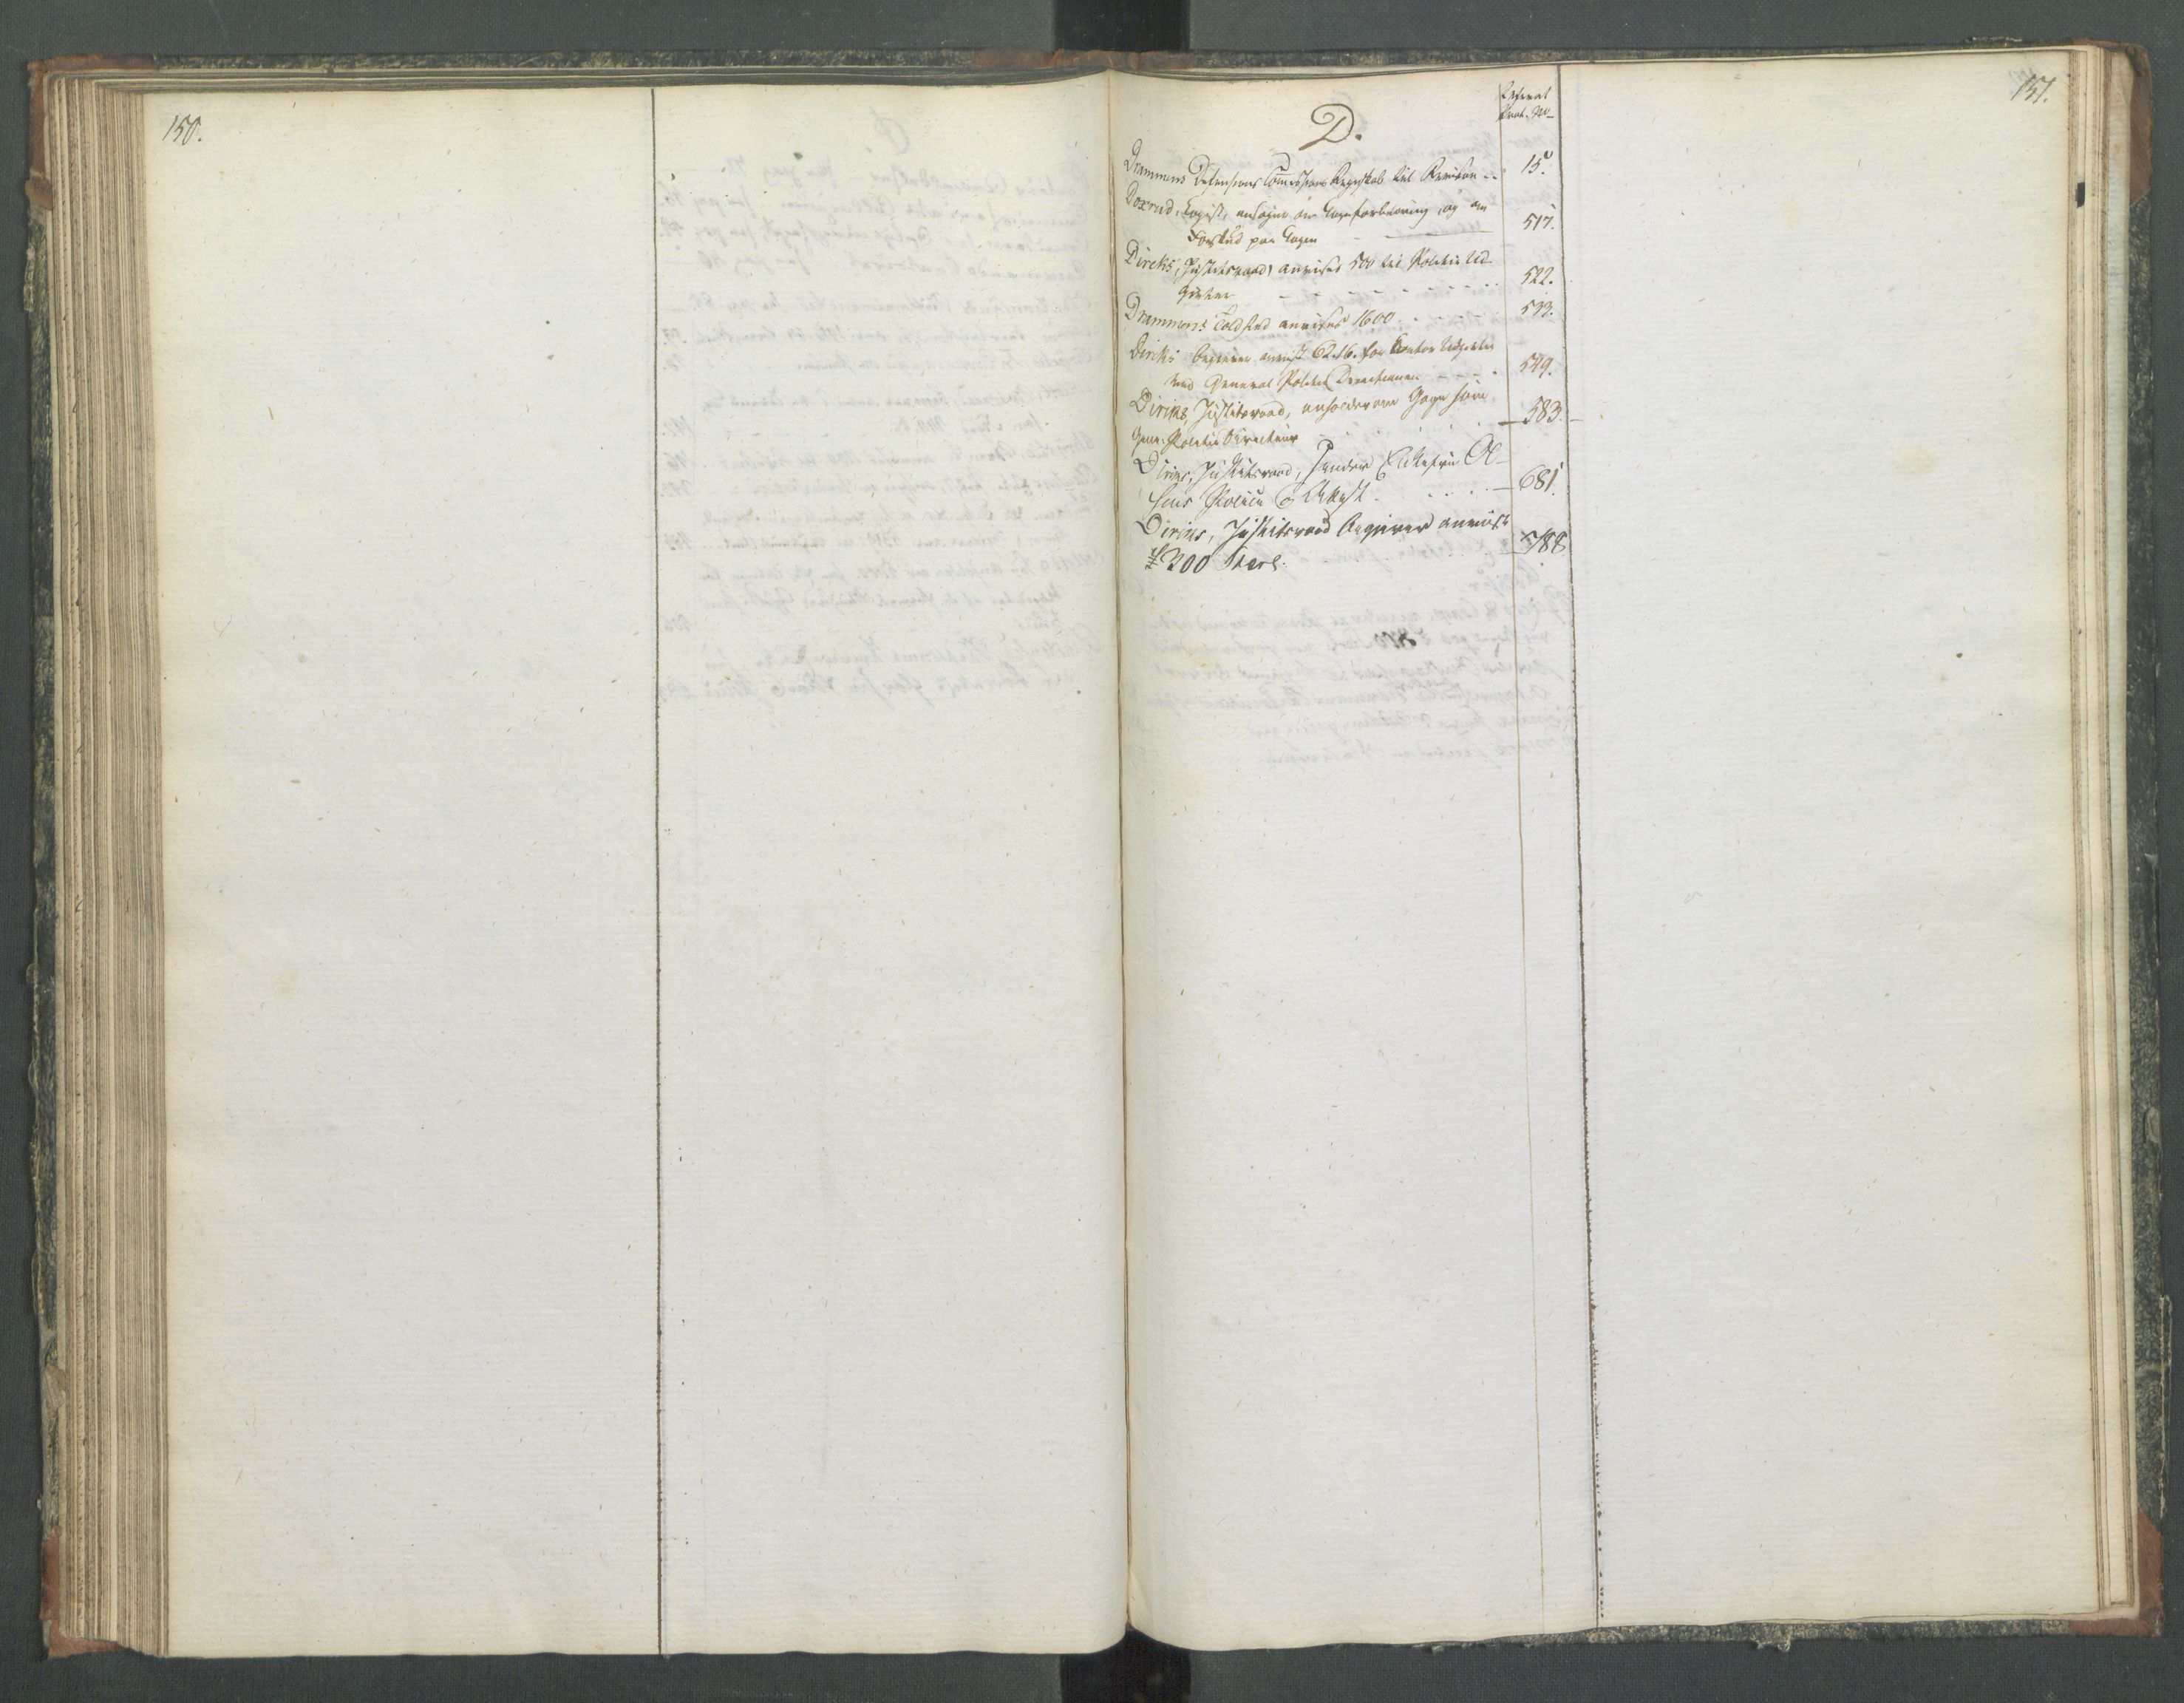 150.
151.
D.
Referat
Prot. No
Drammens Defensions Comissions Regnskab til Revision .. 15.
Doxrud, Copist, ansøger om Gageforbedring, og om
Forskud paa Gagen 517.
Dircks, Justitsraad, anvises 500 til Politie Ud-
givter 522.
Drammens Toldsted anvises 1600 533.
Dircks begierer anvist 62.16. for Contor Udgivter
ved General Politie Directionen 549.
Diriks, Justitsraad, anholder om Gage som
Gene: Politie Directeur 583.
Diriks, Justitsraad, sender Ol-
sens Attest. 681.
Diriks, Justitsraad begierer anvist
£ 200 Sterl. 788